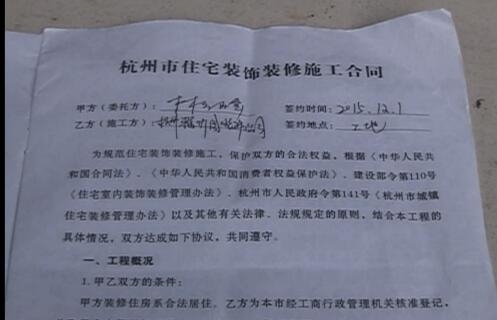 杭州市住宅装饰装修施工合同
甲方（委托方）： 签约时间：2015.12.1
乙方（施工方）：杭州 公司 签约地点：工地
为规范住宅装饰装修施工，保护双方的合法权益，根据《中华人民共
和国合同法》、《中华人民共和国消费者权益保护法》、建设部令第110号
《住宅室内装饰装修管理办法》、杭州市人民政府令第141号《杭州市城镇
住宅装修管理办法》以及其他有关法律、法规规定的原则，结合本工程的
具体情况，双方达成如下协议，共同遵守。
一、工程概况
1. 甲乙双方的条件：
甲方装修住房系合法居住。乙方为本市经工商行政管理机关核准登记，